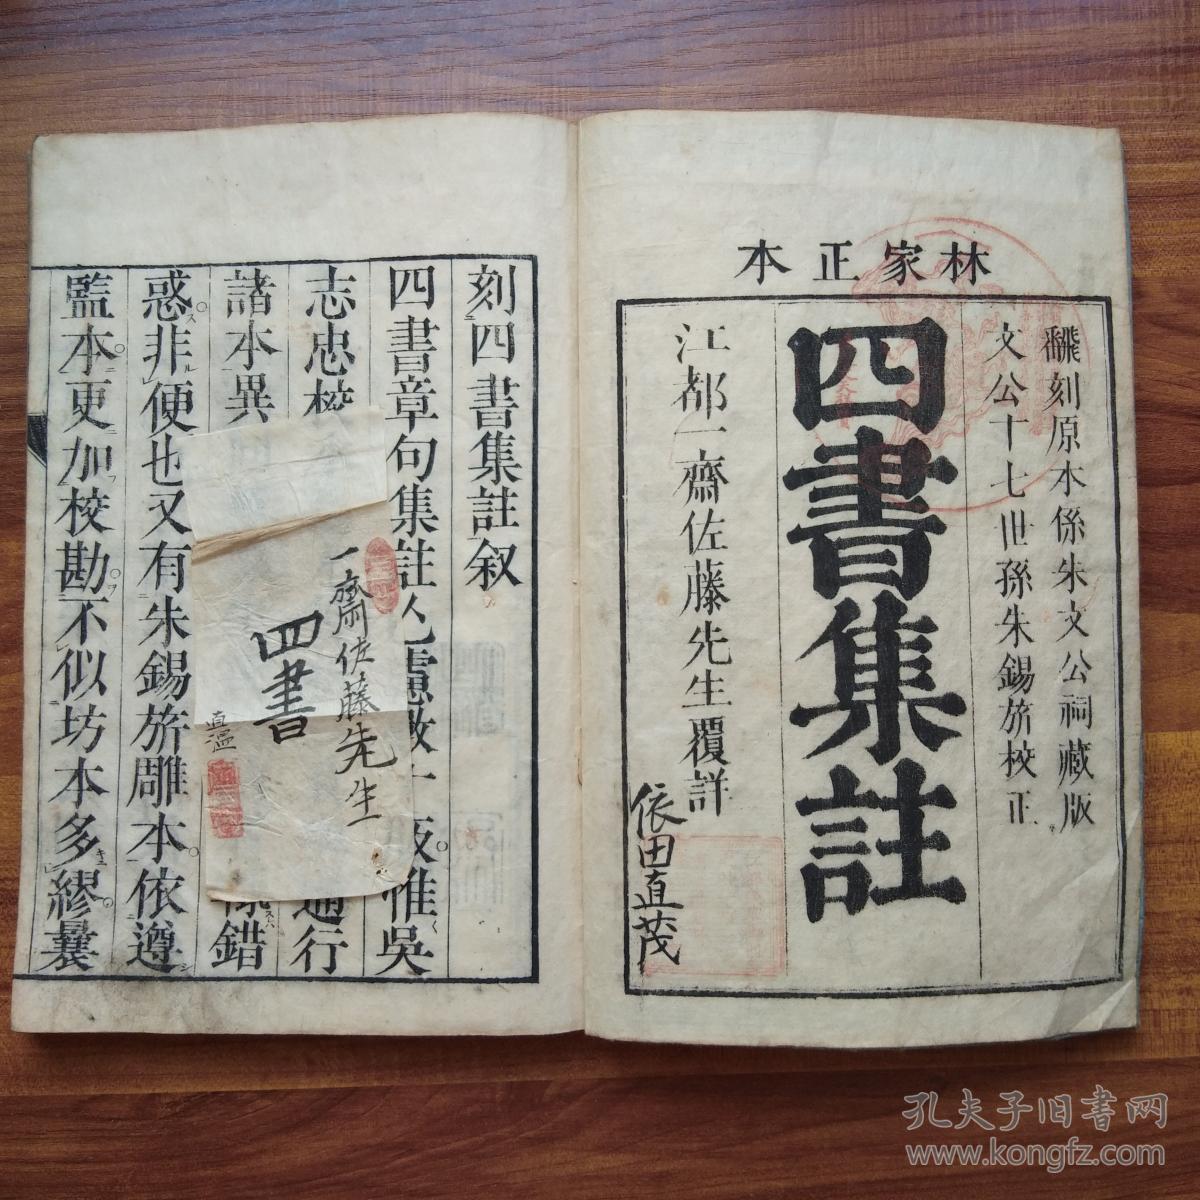 林家正本
飜刻原本係朱文公祠藏版
文公十七世孫朱錫旂校正
四書集註
江都一齋佐藤先生覆詳
依田直茂
刻四書集註叙
四書章句集註人
板惟吳
志忠校
通行
諸本異
錯
惑非便也又有朱錫旂雕本依遵
監本更加校勘不似坊本多繆曩
一齋佐藤先生
四書
直温
孔夫子旧书网
www.kongfz.com